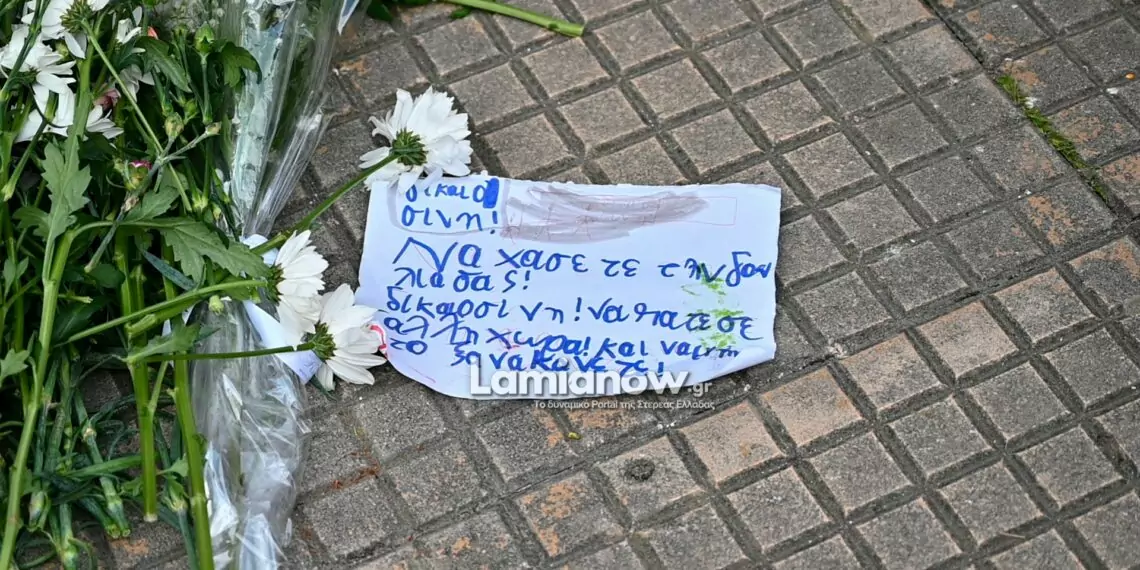 δικαιο
σινη!
Να χασε τε τ ην δου
λια σας!
δικαιοσι νη! να πατε σε
αλ λη χωρα! και να μη
το ξα να κα νε τε!
Lamianow.gr
Το δυναμικό Portal της Στερεάς Ελλάδας